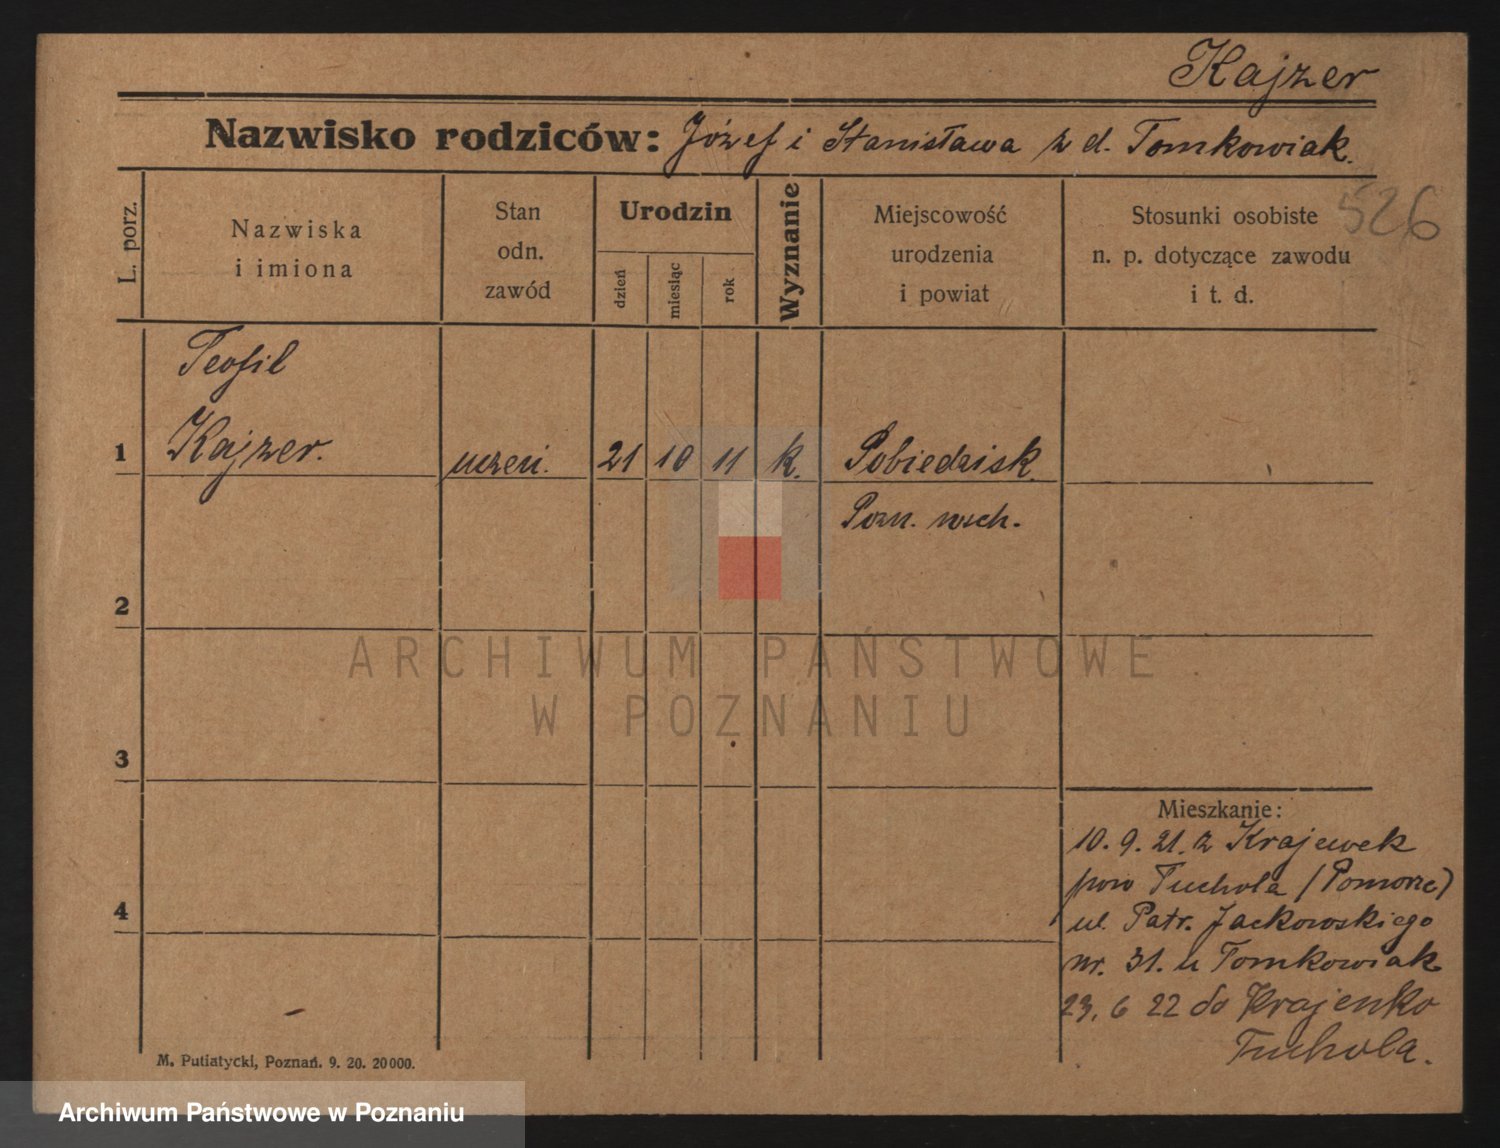 Kajzer
Nazwisko rodziców: Józef i Stanisława z d. Tomkowiak.
526
L. porz.
Nazwiska
i imiona
Stan
odn.
zawód
Urodzin
dzień
miesiąc
rok
Wyznanie
Miejscowość
urodzenia
i powiat
Stosunki osobiste
n. p. dotyczące zawodu
i t. d.
Teofil
1 Kajzer. uczeń. 21 10 11 k. Pobiedzisk
Pozn. wsch.
2
ARCHIWUM PAŃSTWOWE
W POZNANIU
3
Mieszkanie:
10. 9. 21. z Krajewek
pow Tuchola (Pomorze)
4
ul. Patr. Jackowskiego
nr. 31. u Tomkowiak
23. 6 22 do Krajenko
Tuchola.
M. Putiatycki, Poznań. 9. 20. 20000.
Archiwum Państwowe w Poznaniu